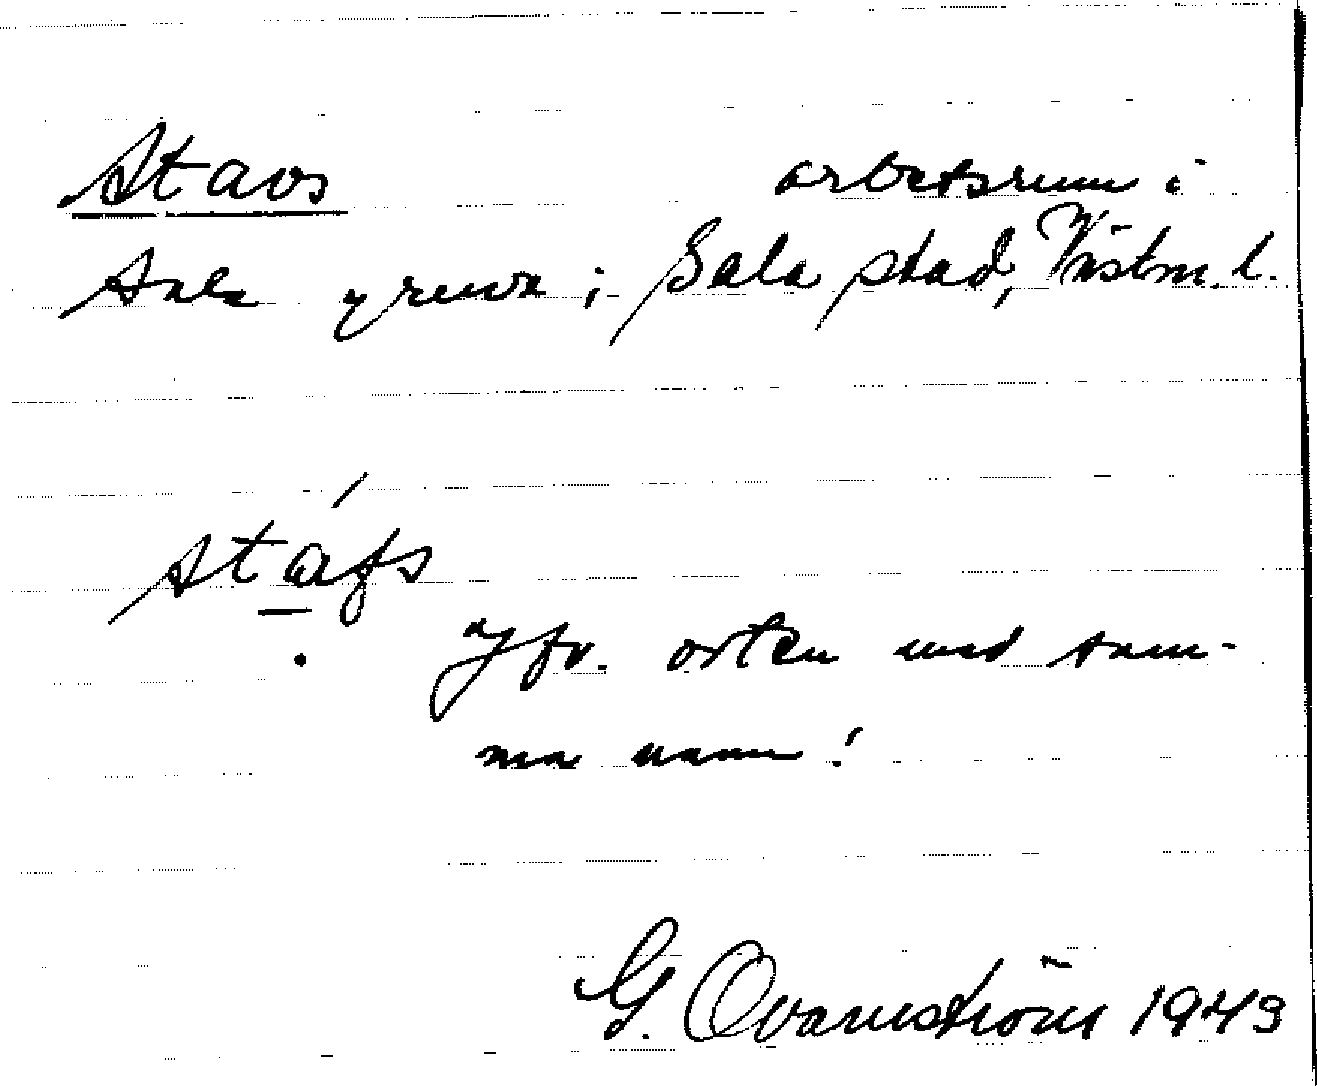 Stavs arbetsrum i
Sala gruva i Sala stad, Västm. l.
stafs
Jfr. orten med sam-
ma namn!
G. Qvarnström 1943